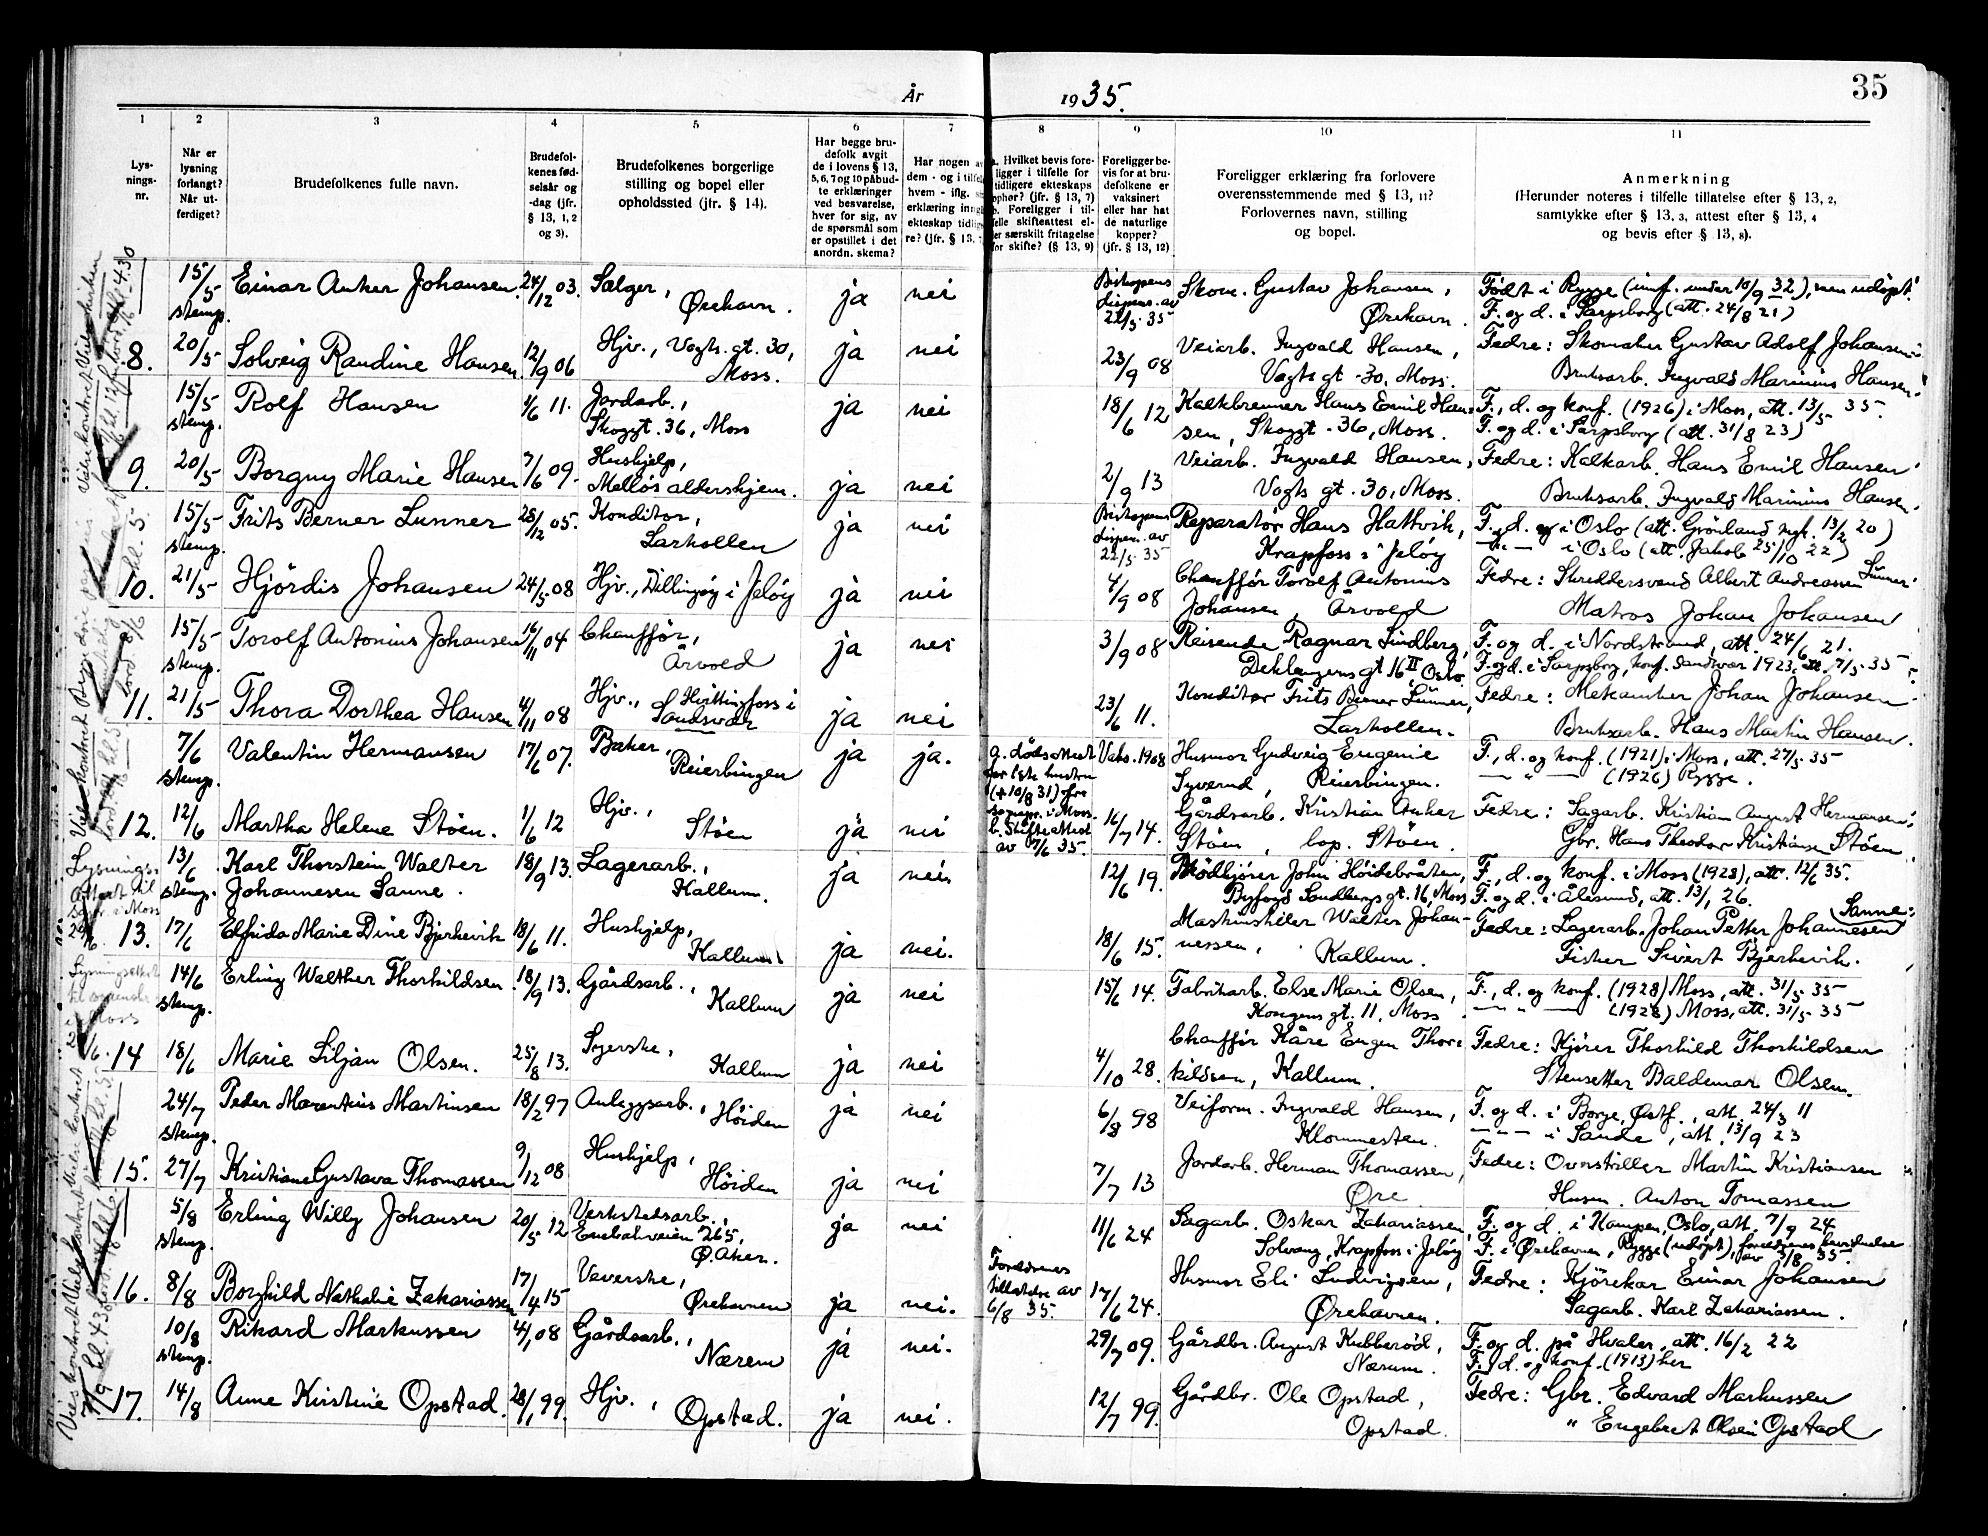 35
År 1935.
1 2 3 4 5 6 7 8 9 10 11
Lys-
nings-
nr.
Når er
lysning
forlangt?
Når ut-
ferdiget?
Brudefolkenes fulle navn.
Brudefol-
kenes fød-
selsår og
-dag (jfr.
§ 13, 1, 2
og 3).
Brudefolkenes borgerlige
stilling og bopel eller
opholdssted (jfr. § 14).
Har begge bru-
defolk avgit
de i lovens § 13,
5, 6, 7 og 10 påbud-
te erklæringer
ved besvarelse,
hver for sig, av
de spørsmål som
er opstillet i det
anordn. skema?
Har nogen av
dem - og i tilfelle
hvem - iflg.
erklæring inng
ekteskap tidlig
re? (jfr. § 13,
a. Hvilket bevis fore-
ligger i tilfelle for
tidligere ekteskaps
ophør? (jfr. § 13, 7)
b. Foreligger i til-
felle skifteattest el-
ler særskilt fritagelse
for skifte? (§ 13, 9)
Foreligger be-
vis for at bru-
defolkene er
vaksinert
eller har hat
de naturlige
kopper?
(jfr. § 13, 12)
Foreligger erklæring fra forlovere
overensstemmende med § 13, 11?
Forlovernes navn, stilling
og bopel.
Anmerkning
(Herunder noteres i tilfelle tillatelse efter § 13, 2,
samtykke efter § 13, 3, attest efter § 13, 4
og bevis efter § 13, 8).
15/5 stemp. Einar Anker Johansen 24/12 03. Selger, Ørehavn. ja nei Biskopens dispens. av 22/5 35 Skom. Gustav Johansen, Ørehavn. Født i Rygge
F. og d. i Sarpsborg (att. 24/8 21)
8. 20/5 Solveig Randine Hansen 12/9 06 Hjv., Vogts gt. 30, Moss. ja nei 23/9 08 Veiarb. Ingvald Hansen, Vogts gt. 30, Moss. Fedre: Skomaker Gustav Adolf Johansen
Bruksarb. Ingvald Marinius Hansen
15/5 stemp. Rolf Hansen 1/6 11. Jordarb., Skoggt. 36, Moss ja nei 18/6 12 Kalkbrenner Hans Emil Hansen, Skoggt. 36, Moss. F., d. og konf. (1926) i Moss, att. 13/5 35.
F. og d. i Sarpsborg (att. 31/8 23)
9. 20/5 Borgny Marie Hansen 7/6 09. Hushjelp, Melløs aldershjem. ja nei 2/9 13 Veiarb. Ingvald Hansen, Vogts gt. 30, Moss. Fedre: Kalkarb. Hans Emil Hansen
Bruksarb. Ingvald Marinius Hansen
15/5 stemp. Frits Berner Lunner 28/12 05. Konditor, Larkollen ja nei Biskopens dispen. av 22/5 35 Reparatør Hans Hattvik, Krapfoss i Jeløy F., d. og i Oslo (att. Grønland mgt. 13/2 20)
i Oslo (att. Jakob 25/10 22)
10. 21/5 Hjördis Johansen 24/5 08 Hjv., Dillingøy i Jeløy ja nei 4/9 08 Chauffør Torolf Antonius Johansen, Årvold Fedre: Skreddersvend Albert Andreassen Lunner
Matros Johan Johansen
15/5 stemp. Torolf Antonius Johansen 16/11 04 Chauffør, Årvold ja nei 3/9 08 Reisende Ragnar Lindberg, gt 16 II, Oslo. F. og d. i Nordstrand, att. 24/6 21.
F. og d. i Sarpsborg, konf. Sandsvær 1923, att. 7/5 35
11. 21/5 Thora Dorthea Hansen 4/11 08 Hjv., Hvittingfoss i Sandsvær ja nei 23/6 11. Konditor Frits Berner Lunner, Larkollen. Fedre: Mekaniker Johan Johansen
Bruksarb. Hans Martin Hansen.
7/6 stemp. Valentin Hermansen 17/6 07. Baker, Reierbingen ja ja. a. dødsattest for 1ste hustru (+ 10/8 31) fra sognepr. i Moss. b. Skifteattest av 7/6 35. Vaks. 1908 Husmor Gudveig Eugenie Syverud, Reierbingen. F., d. og konf. (1921) i Moss, att. 27/5 35
(1926) Rygge.
12. 12/6 Martha Helene Støen. 1/6 12 Hjv., Støen ja nei 16/7 14. Gårdsarb. Kristian Anker Støen, bop. Støen. Fedre: Sagarb. Kristian August Hermansen
Gbr. Hans Theodor Kristiansen Støen
13/6 stemp. Karl Thorstein Walter Johannesen Sanne. 18/9 13. Lagerarb., Kallum. ja nei 12/6 19. John Høidebråten, Byfogd Sandbergs gt. 16, Moss F., d. og konf. i Moss (1928), att. 12/6 35.
F. og d. i Ålesund, att. 13/1 26.
13. 17/6 Elfrida Marie Dine Bjerkevik 18/6 11. Hushjelp, Kallum ja nei. 18/6 15. Maskinskiler Walter Johannessen, Kallum. Fedre: Lagerarb. Johan Petter Johannesen Sanne
Fisker Sivert Bjerkevik.
14/6 stemp. Erling Walther Thorkildsen 18/9 13. Gårdsarb., Kallum ja nei 15/6 14. Fabrikarb. Else Marie Olsen, Kongens gt. 11, Moss F., d. og konf. (1928) Moss, att. 31/5 35
(1928) Moss, att. 31/5 35
14 18/6 Marie Liljan Olsen. 25/8 13. Syerske, Kallum ja nei 4/10 28. Chauffør Kåre Eugen Thorkildsen, Kallum. Fedre: Kjører Thorkild Thorkildsen
Stensetter Baldemar Olsen.
24/7 stemp. Peder Marentius Martinsen 18/2 97 Anleggsarb., Höiden ja nei 6/8 98 Veiform. Ingvald Hansen, Klommesten. F. og d. i Borge, Østf., att. 24/3 11
i Sande, att. 13/9 23
15. 27/7 Kristiane Gustava Thomassen 9/12 08 Hushjelp, Höiden ja nei 7/7 13 Jordarb. Herman Thomassen, Øre Fedre: Overstiller Martin Kristiansen
Husm. Anton Tomassen
5/8 stemp. Erling Willy Johansen 20/5 12 Verkstedsarb. Enebakveien 265, Ø. Aker. ja nei 11/6 24 Sagarb. Oskar Zakariassen, Solvang, Krapfoss i Jeløy F. og d. i Kampen, Oslo, att. 7/9 24
F. i Ørehavnen, Rygge (udøpt), foreldrenes bevidnelse av 3/8 35.
16. 8/8 Borghild Nathalie Zakariassen 17/4 15 Veverske, Ørehavnen ja nei. Foreldrenes tillatelse av 6/8 35. 17/6 24. Husmor Eli Ludvigsen, Ørehavnen. Fedre: Kjørekar Einar Johansen
Sagarb. Karl Zakariassen.
10/8 stemp. Rikard Markussen 4/1 08 Gårdsarb., Nærem ja nei. 29/7 09. Gårdbr. August Kubberød, Nærum. F. og d. på Hvaler, att. 16/2 22
F., d. og konf. (1913) her
17. 14/8 Anne Kirstine Opstad. 28/1 99. Hjv., Opstad. ja nei. 12/7 99. Gårdbr. Ole Opstad, Opstad. Fedre: Gbr. Edvard Markussen
" Engebret Olsen Opstad